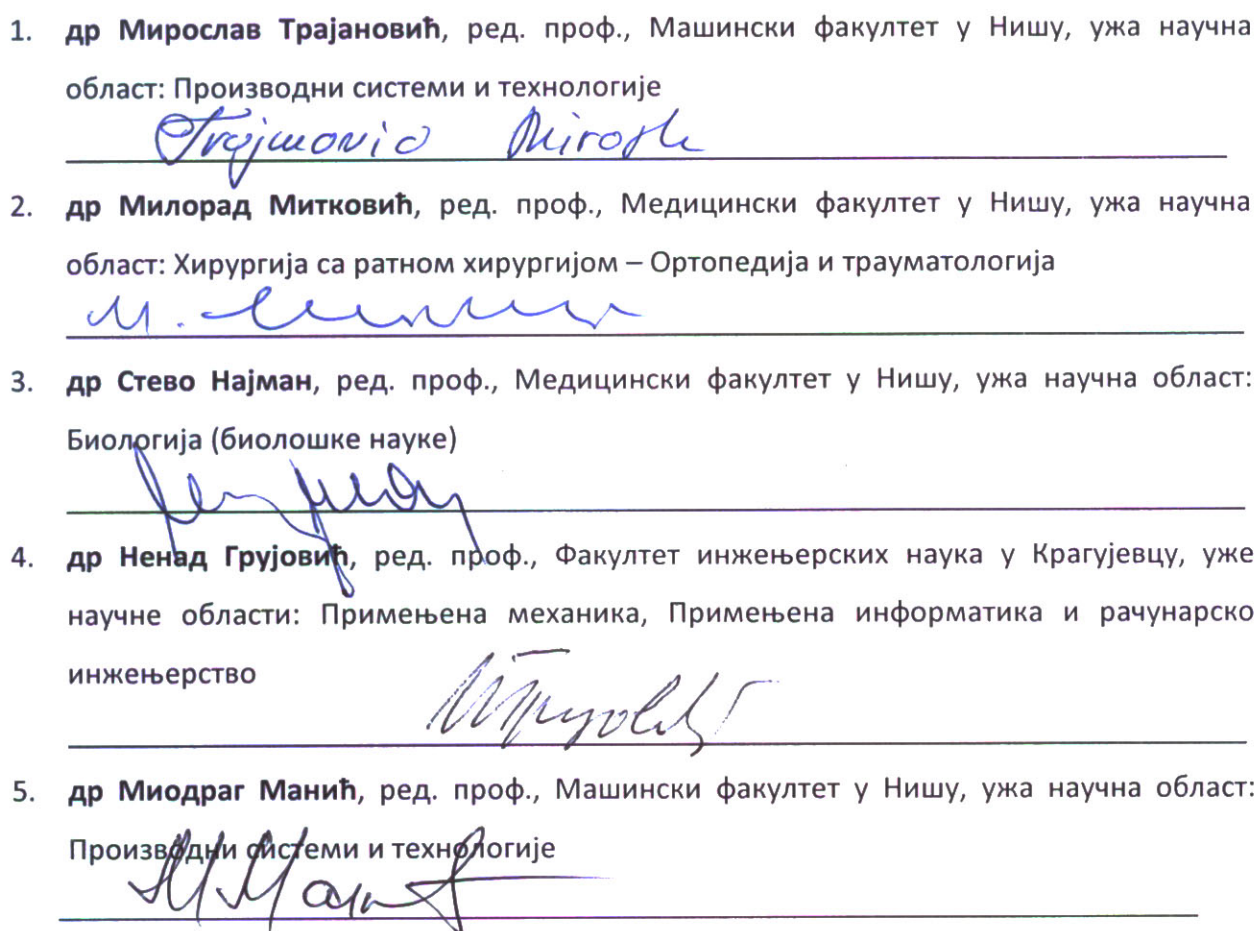 1. др Мирослав Трајановић, ред. проф., Машински факултет у Нишу, ужа научна
област: Производни системи и технологије
2. др Милорад Митковић, ред. проф., Медицински факултет у Нишу, ужа научна
област: Хирургија са ратном хирургијом – Ортопедија и трауматологија
3. др Стево Најман, ред. проф., Медицински факултет у Нишу, ужа научна област:
Биологија (биолошке науке)
4. др Ненад Грујовић, ред. проф., Факултет инжењерских наука у Крагујевцу, уже
научне области: Примењена механика, Примењена информатика и рачунарско
инжењерство
5. др Миодраг Манић, ред. проф., Машински факултет у Нишу, ужа научна област:
Производни системи и технологије